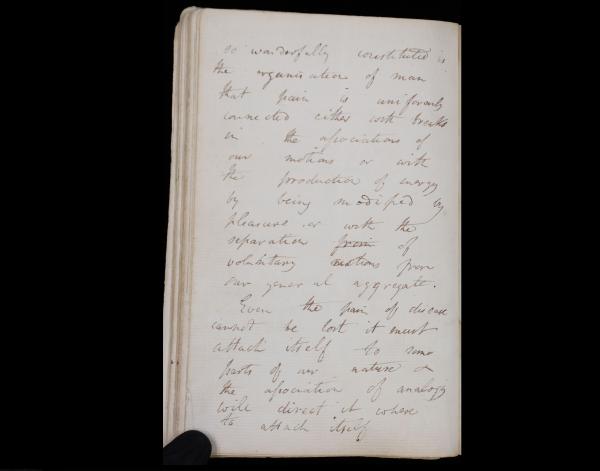 so wonderfully constituted is
the organisation of man
that pain is uniformly
connected either with breaks
in the associations of
our motions or with
the production of energy
by being modified by
pleasure or with the
separation from of
voluntary motions from
our general aggregate.
Even the pain of disease
cannot be lost it must
attach itself to some
parts of our nature &
the association of analogy
will direct it where
to attach itself